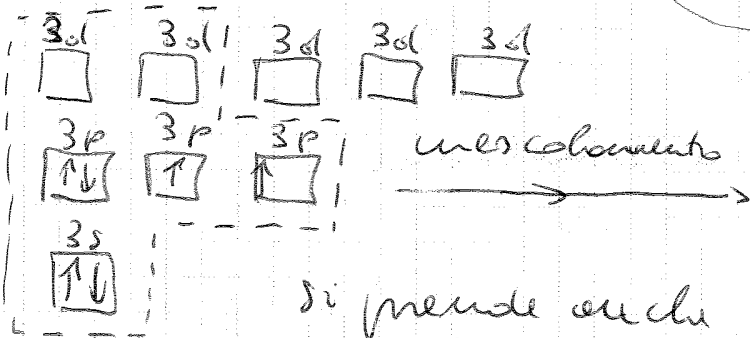 3d 3d 3d 3d 3d
3p 3p 3p
mescolamento
↑↓ ↑ ↑
3s
↑↓
si prende anche